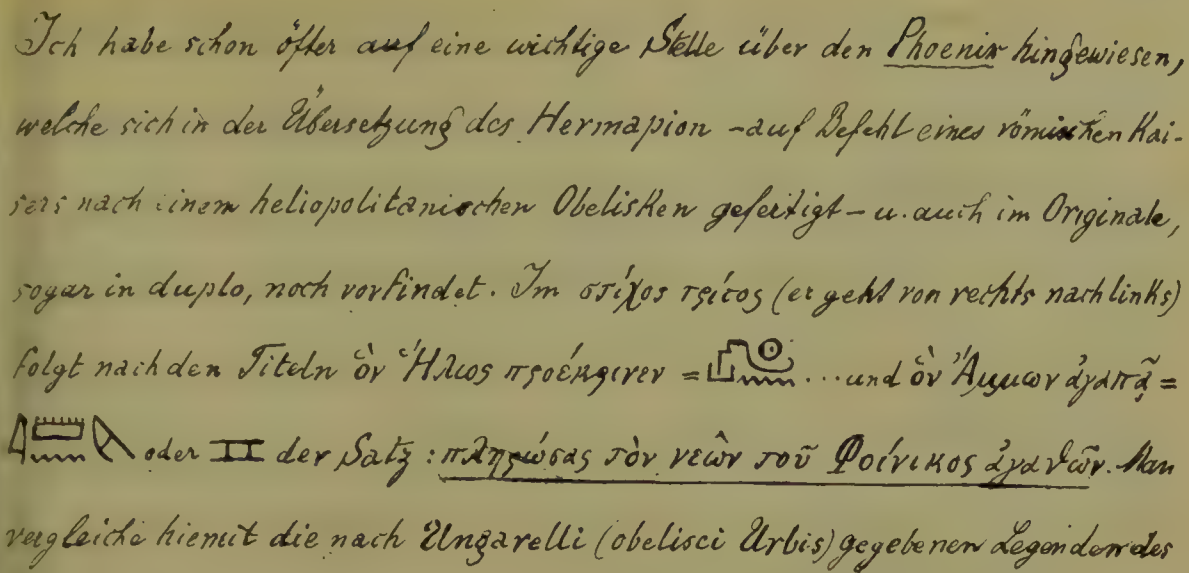 Ich habe schon öfter auf eine wichtige Stelle über den Phoenix hingewiesen,
welche sich in der Übersetzung des Hermapion – auf Befehl eines römischen Kai-
sers nach einem heliopolitanischen Obelisken gefertigt – u. auch im Originale,
sogar in duplo, noch vorfindet. Im στίχος τρίτος (er geht von rechts nach links)
folgt nach den Titeln ὃν Ἥλιος προέκρινεν = ... und ὃν Ἄμμων ἀγαπᾷ =
oder der Satz: πληρώσας τὸν νεὼν τοῦ Φοίνικος ἀγαθῶν. Man
vergleiche hiemit die nach Ungarelli (obelisci Urbis) gegebenen Legenden des